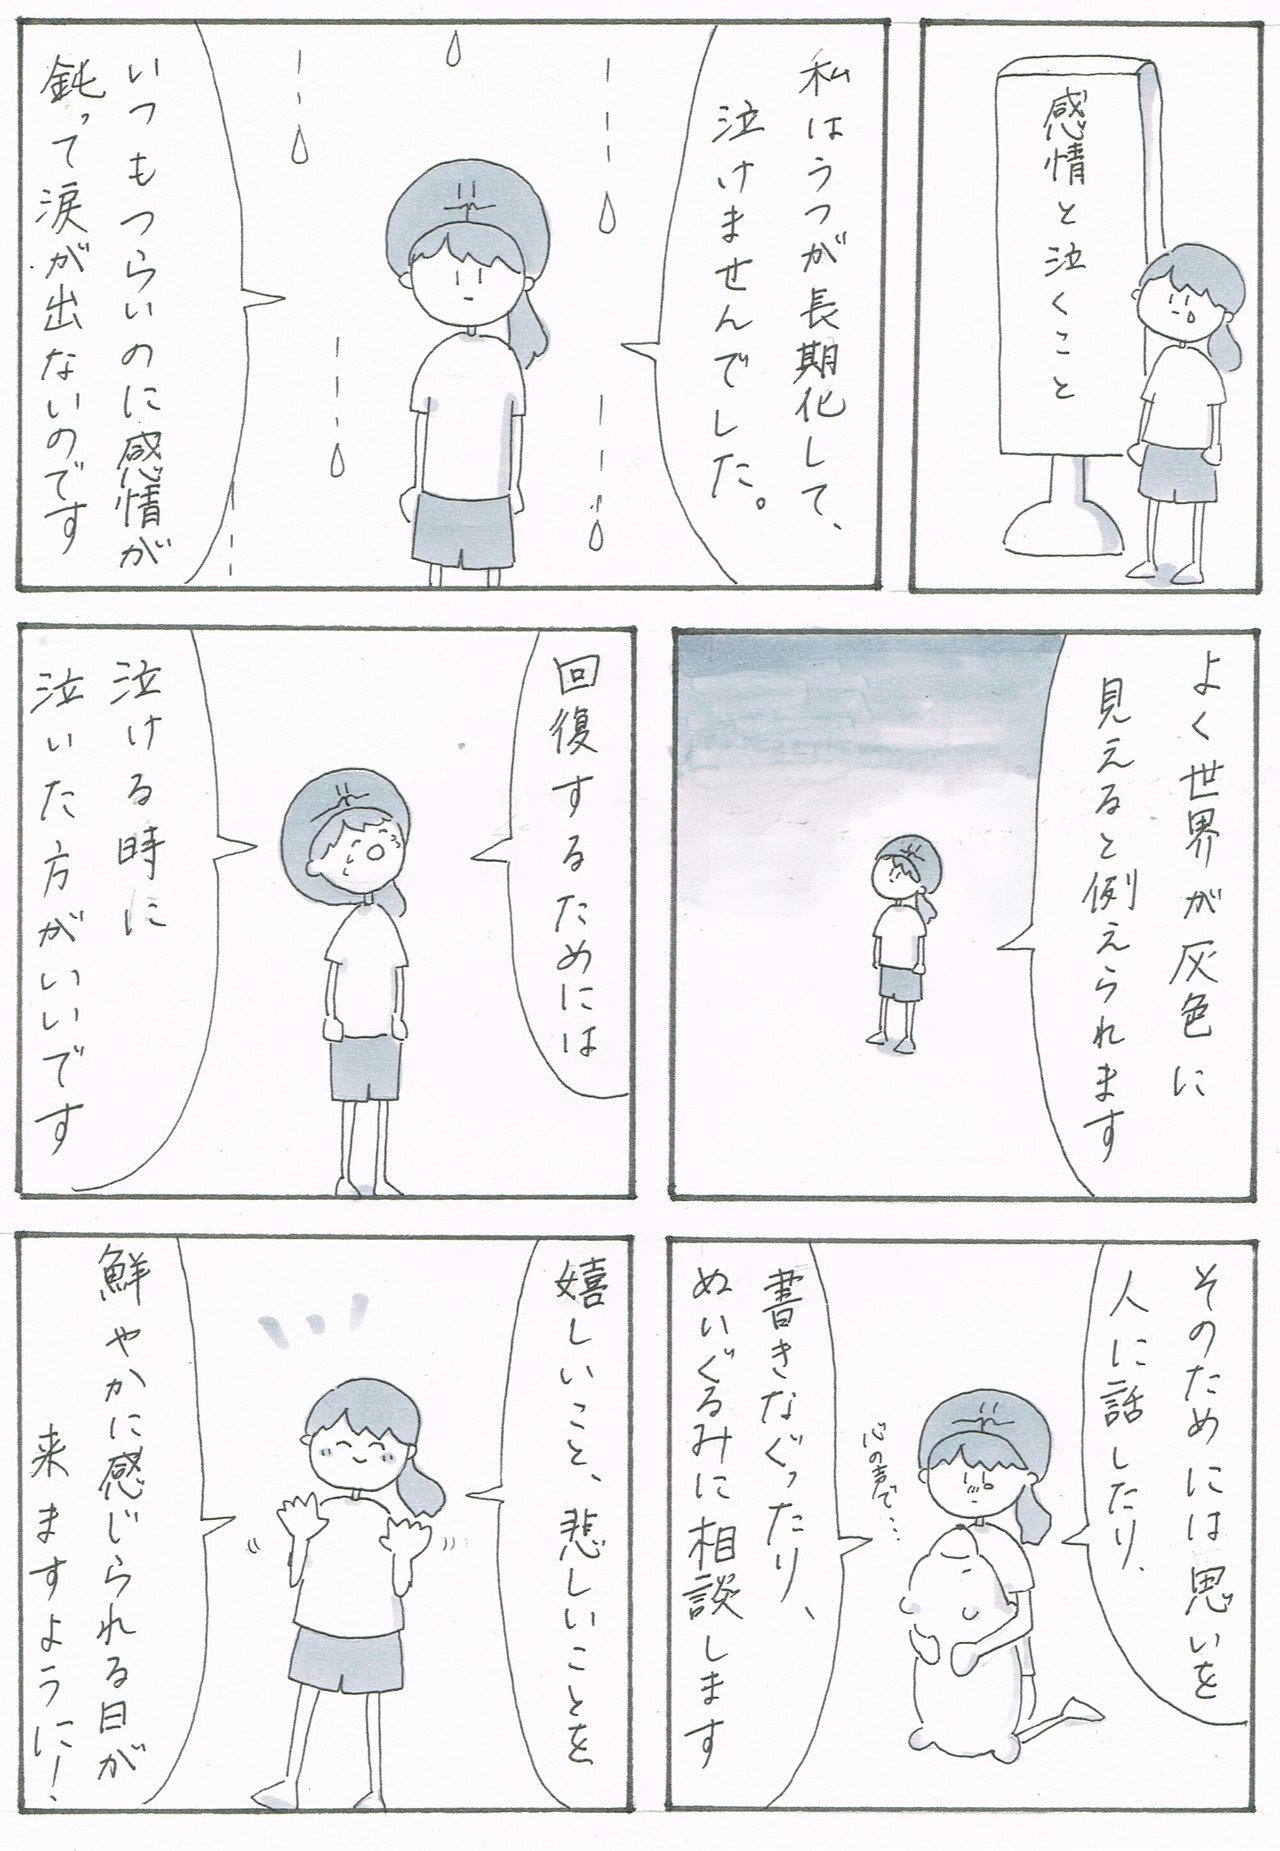 感情と泣くこと
私はうつが長期化して、
泣けませんでした。
いつもつらいのに感情が
鈍って涙が出ないのです
よく世界が灰色に
見えると例えられます
回復するためには
泣ける時に
泣いた方がいいです
そのためには思いを
人に話したり、
書きなぐったり、
ぬいぐるみに相談します
心の声で…
嬉しいこと、悲しいことを
鮮やかに感じられる日が
来ますように!